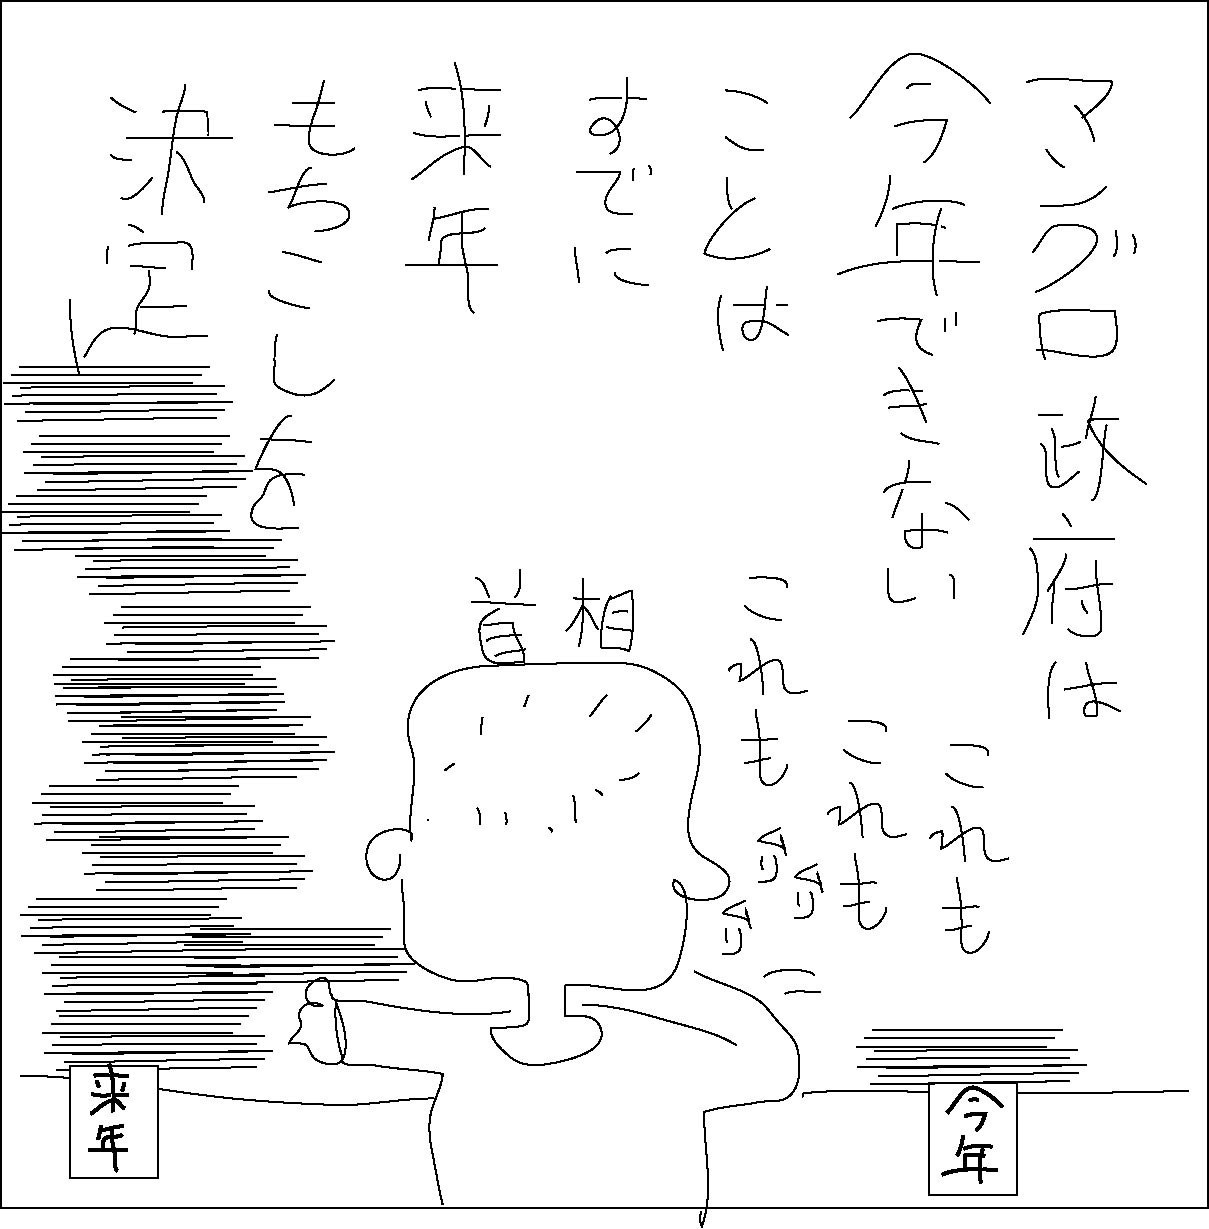 マングロ政府は
今年できない
ことは
すでに
来年
もちこしを
決定
首相
これも
これも
これも
来年
今年